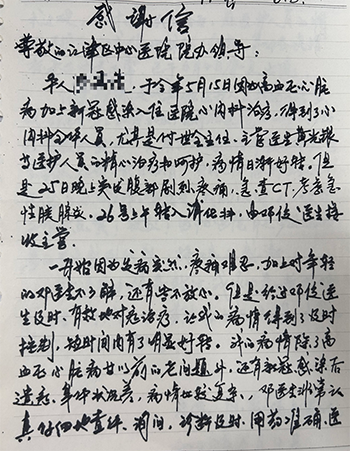 感谢信
尊敬的江津区中心医院院办领导:
本人 于今年5月15日因为高血压心脏
病加上新冠感染入住医院心内科治疗,得到了心
内科全体人员,尤其是付世全主任、主管医生黄光
等医护人员的精心治疗和呵护,病情日渐好转。但
是25日晚上突发腹部剧烈疼痛,急查CT,考虑急
性胰腺炎。26号上午转入消化科,由邓 医生接
收主管。
一开始因为发病突然,疼痛难忍,加上对年轻
的邓医生不了解,还有些不放心。但是经过邓 医
生及时、有效地对症治疗,让我的病情得到了及时
控制,短时间内有了明显好转。我的病情除了高
血压心脏病廿 前的老问题外,还有新冠感染后
遗症,身体状况差,病情比较复杂,邓医生非常认
真仔细地查体、询问,诊断及时,用药准确、医